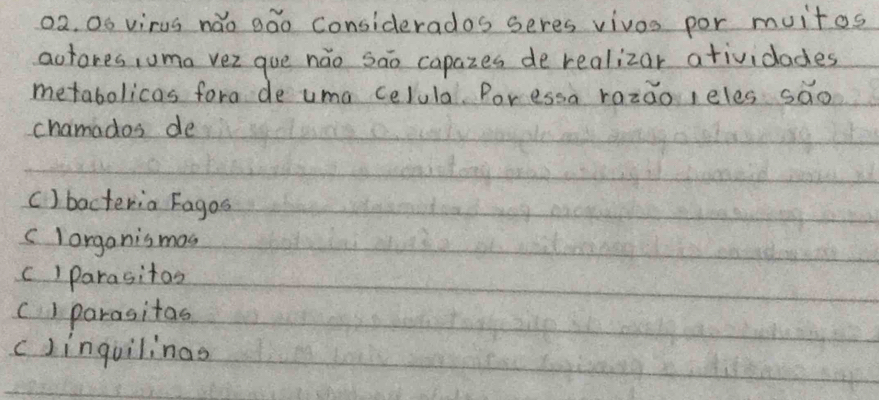 02. Os virus não são considerados seres vivos por muitos
autores, uma vez que não são capazes de realizar atividades
metabolicas fora de uma celula. Por essa razão, eles são
chamados de
( ) bacteria Fagos
( ) organismos
( ) parasitos
( ) parasitas
( ) inquilinas